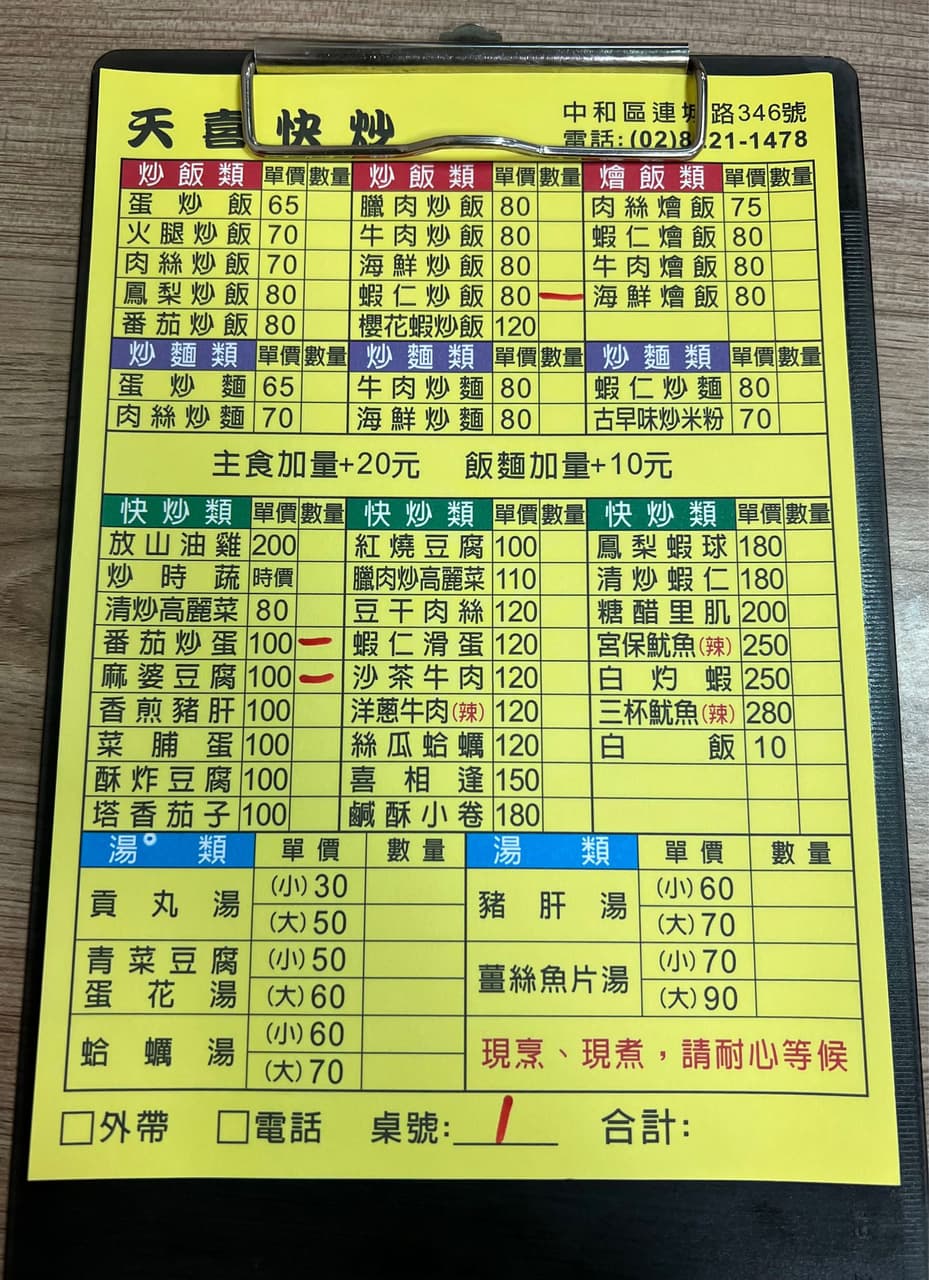 天喜快炒
中和區連城路346號
電話:(02)8 21-1478
炒飯類 單價 數量 炒飯類 單價 數量 燴飯類 單價 數量
蛋炒飯 65 臘肉炒飯 80 肉絲燴飯 75
火腿炒飯 70 牛肉炒飯 80 蝦仁燴飯 80
肉絲炒飯 70 海鮮炒飯 80 牛肉燴飯 80
鳳梨炒飯 80 蝦仁炒飯 80 一 海鮮燴飯 80
番茄炒飯 80 櫻花蝦炒飯 120
炒麵類 單價 數量 炒麵類 單價 數量 炒麵類 單價 數量
蛋炒麵 65 牛肉炒麵 80 蝦仁炒麵 80
肉絲炒麵 70 海鮮炒麵 80 古早味炒米粉 70
主食加量+20元 飯麵加量+10元
快炒類 單價 數量 快炒類 單價 數量 快炒類 單價 數量
放山油雞 200 紅燒豆腐 100 鳳梨蝦球 180
炒時蔬 時價 臘肉炒高麗菜 110 清炒蝦仁 180
清炒高麗菜 80 豆干肉絲 120 糖醋里肌 200
番茄炒蛋 100 一 蝦仁滑蛋 120 宮保魷魚(辣) 250
麻婆豆腐 100 一 沙茶牛肉 120 白灼蝦 250
香煎豬肝 100 洋蔥牛肉(辣) 120 三杯魷魚(辣) 280
菜脯蛋 100 絲瓜蛤蠣 120 白飯 10
酥炸豆腐 100 喜相逢 150
塔香茄子 100 鹹酥小卷 180
湯類 單價 數量 湯類 單價 數量
貢丸湯 (小)30 豬肝湯 (小)60
(大)50 (大)70
青菜豆腐 (小)50 薑絲魚片湯 (小)70
蛋花湯 (大)60 (大)90
蛤蠣湯 (小)60
(大)70
現烹、現煮,請耐心等候
□外帶 □電話 桌號:1 合計: